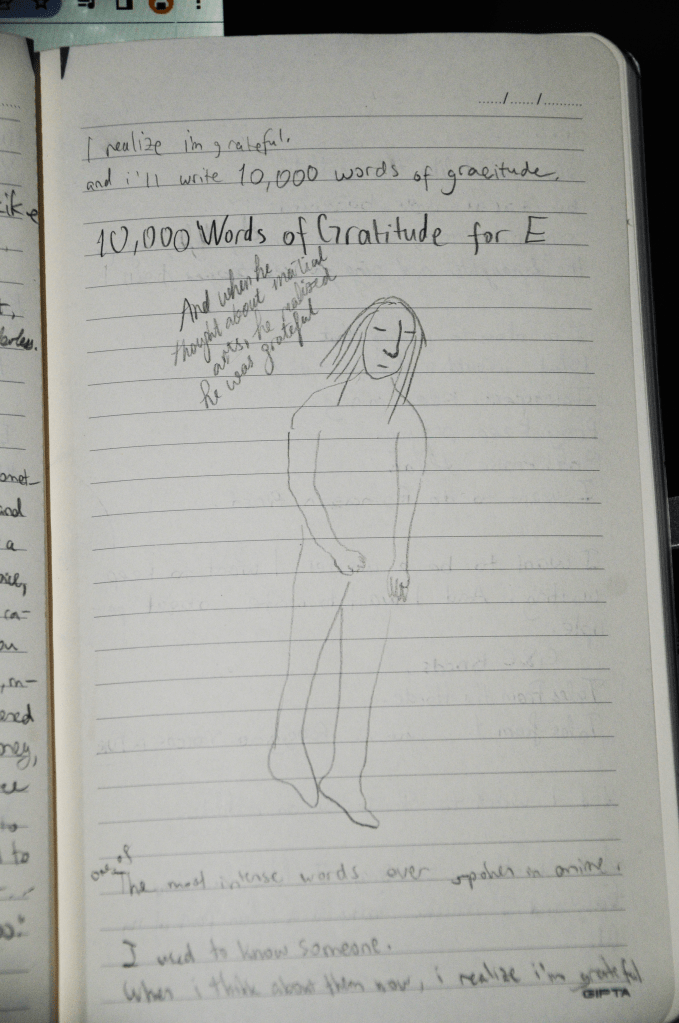 ....../....../..........
I realize i'm grateful.
and i'll write 10,000 words of graeitude.
10,000 Words of Gratitude for E
And when he
thought about martial
arts, he realized
he was grateful
one of
The most intense words ever spoken in anime.
I used to know someone.
When i think about them now, i realize i'm grateful
GIPTA
ike
t,
and
a
ca-
on
m-
ney,
to
to